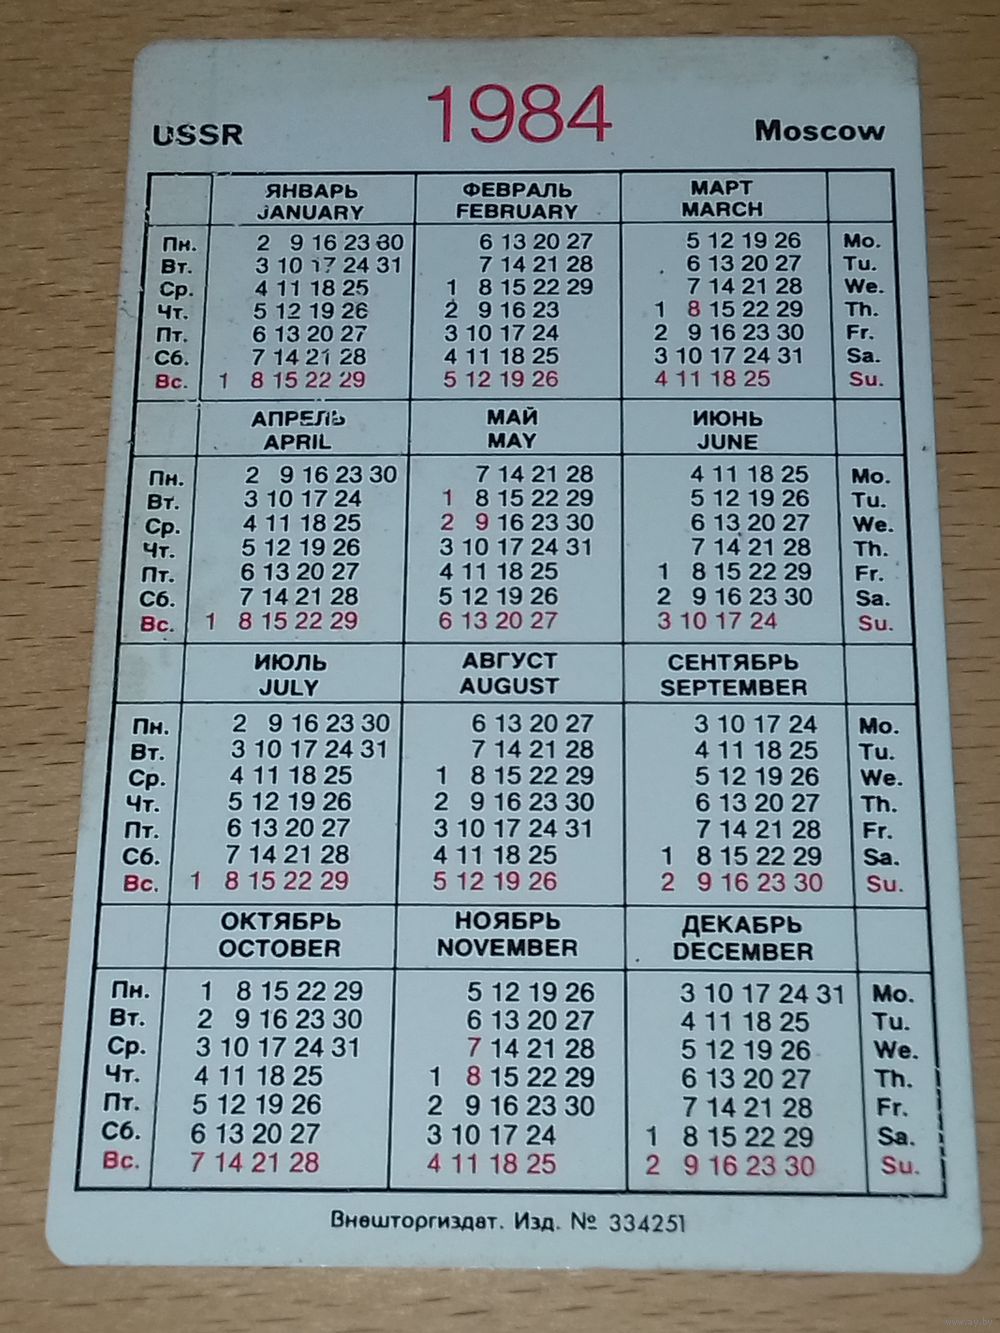 1984
USSR Moscow
ЯНВАРЬ ФЕВРАЛЬ МАРТ
JANUARY FEBRUARY MARCH
Пн. 2 9 16 23 30 6 13 20 27 5 12 19 26 Mo.
Вт. 3 10 17 24 31 7 14 21 28 6 13 20 27 Tu.
Ср. 4 11 18 25 1 8 15 22 29 7 14 21 28 We.
Чт. 5 12 19 26 2 9 16 23 1 8 15 22 29 Th.
Пт. 6 13 20 27 3 10 17 24 2 9 16 23 30 Fr.
Сб. 7 14 21 28 4 11 18 25 3 10 17 24 31 Sa.
Вс. 1 8 15 22 29 5 12 19 26 4 11 18 25 Su.
АПРЕЛЬ МАЙ ИЮНЬ
APRIL MAY JUNE
Пн. 2 9 16 23 30 7 14 21 28 4 11 18 25 Mo.
Вт. 3 10 17 24 1 8 15 22 29 5 12 19 26 Tu.
Ср. 4 11 18 25 2 9 16 23 30 6 13 20 27 We.
Чт. 5 12 19 26 3 10 17 24 31 7 14 21 28 Th.
Пт. 6 13 20 27 4 11 18 25 1 8 15 22 29 Fr.
Сб. 7 14 21 28 5 12 19 26 2 9 16 23 30 Sa.
Вс. 1 8 15 22 29 6 13 20 27 3 10 17 24 Su.
ИЮЛЬ АВГУСТ СЕНТЯБРЬ
JULY AUGUST SEPTEMBER
Пн. 2 9 16 23 30 6 13 20 27 3 10 17 24 Mo.
Вт. 3 10 17 24 31 7 14 21 28 4 11 18 25 Tu.
Ср. 4 11 18 25 1 8 15 22 29 5 12 19 26 We.
Чт. 5 12 19 26 2 9 16 23 30 6 13 20 27 Th.
Пт. 6 13 20 27 3 10 17 24 31 7 14 21 28 Fr.
Сб. 7 14 21 28 4 11 18 25 1 8 15 22 29 Sa.
Вс. 1 8 15 22 29 5 12 19 26 2 9 16 23 30 Su.
ОКТЯБРЬ НОЯБРЬ ДЕКАБРЬ
OCTOBER NOVEMBER DECEMBER
Пн. 1 8 15 22 29 5 12 19 26 3 10 17 24 31 Mo.
Вт. 2 9 16 23 30 6 13 20 27 4 11 18 25 Tu.
Ср. 3 10 17 24 31 7 14 21 28 5 12 19 26 We.
Чт. 4 11 18 25 1 8 15 22 29 6 13 20 27 Th.
Пт. 5 12 19 26 2 9 16 23 30 7 14 21 28 Fr.
Сб. 6 13 20 27 3 10 17 24 1 8 15 22 29 Sa.
Вс. 7 14 21 28 4 11 18 25 2 9 16 23 30 Su.
Внешторгиздат. Изд. № 334251
www.ay.by